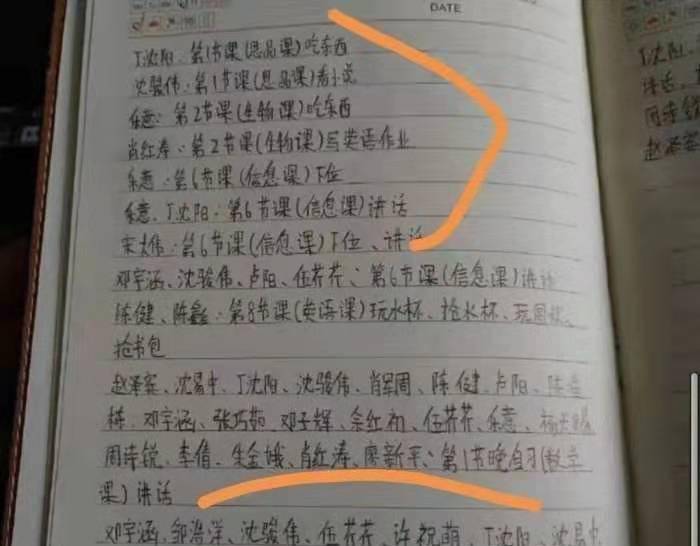 DATE
丁沈阳:第1节课(思品课)吃东西
沈骏伟:第1节课(思品课)看小说
乐意:第2节课(生物课)吃东西
肖红涛:第2节课(生物课)写英语作业
乐意:第6节课(信息课)下位
乐意、丁沈阳:第6节课(信息课)讲话
宋太伟:第6节课(信息课)下位、讲话
邓宇涵、沈骏伟、卢阳、伍芹芹:第6节课(信息课)讲话
陈健、陈鑫:第8节课(英语课)玩水杯、抢水杯、玩
抢书包
赵泽宾、沈易中、丁沈阳、沈骏伟、肖军周、陈健、卢阳、陈
栋、邓宇涵、张巧茹、邓子辉、余红初、伍芹芹、乐意、
周诗锐、李倩、朱金娥、肖红涛、廖新平:第1节晚自习(数学
课)讲话
邓宇涵、邹浩洋、沈骏伟、伍芹芹、许祝萌、丁沈阳、沈易中
丁沈阳
讲话
周诗
赵泽宾